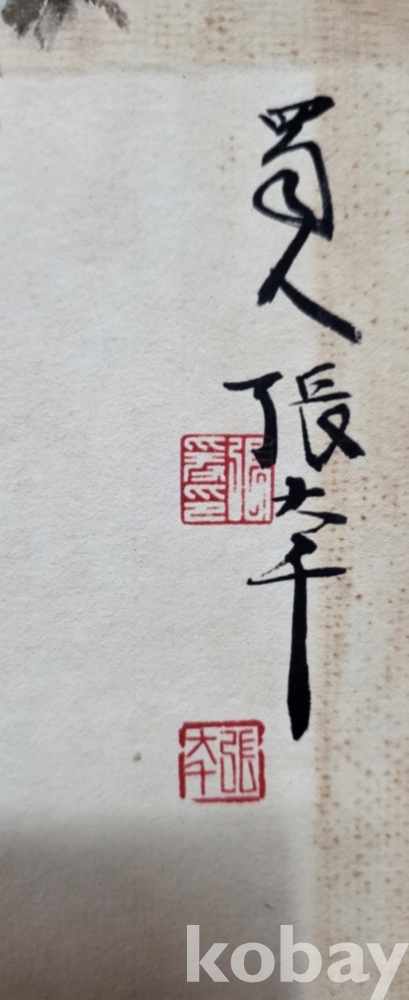 蜀人張大千
張爰之印
張大千
kobay